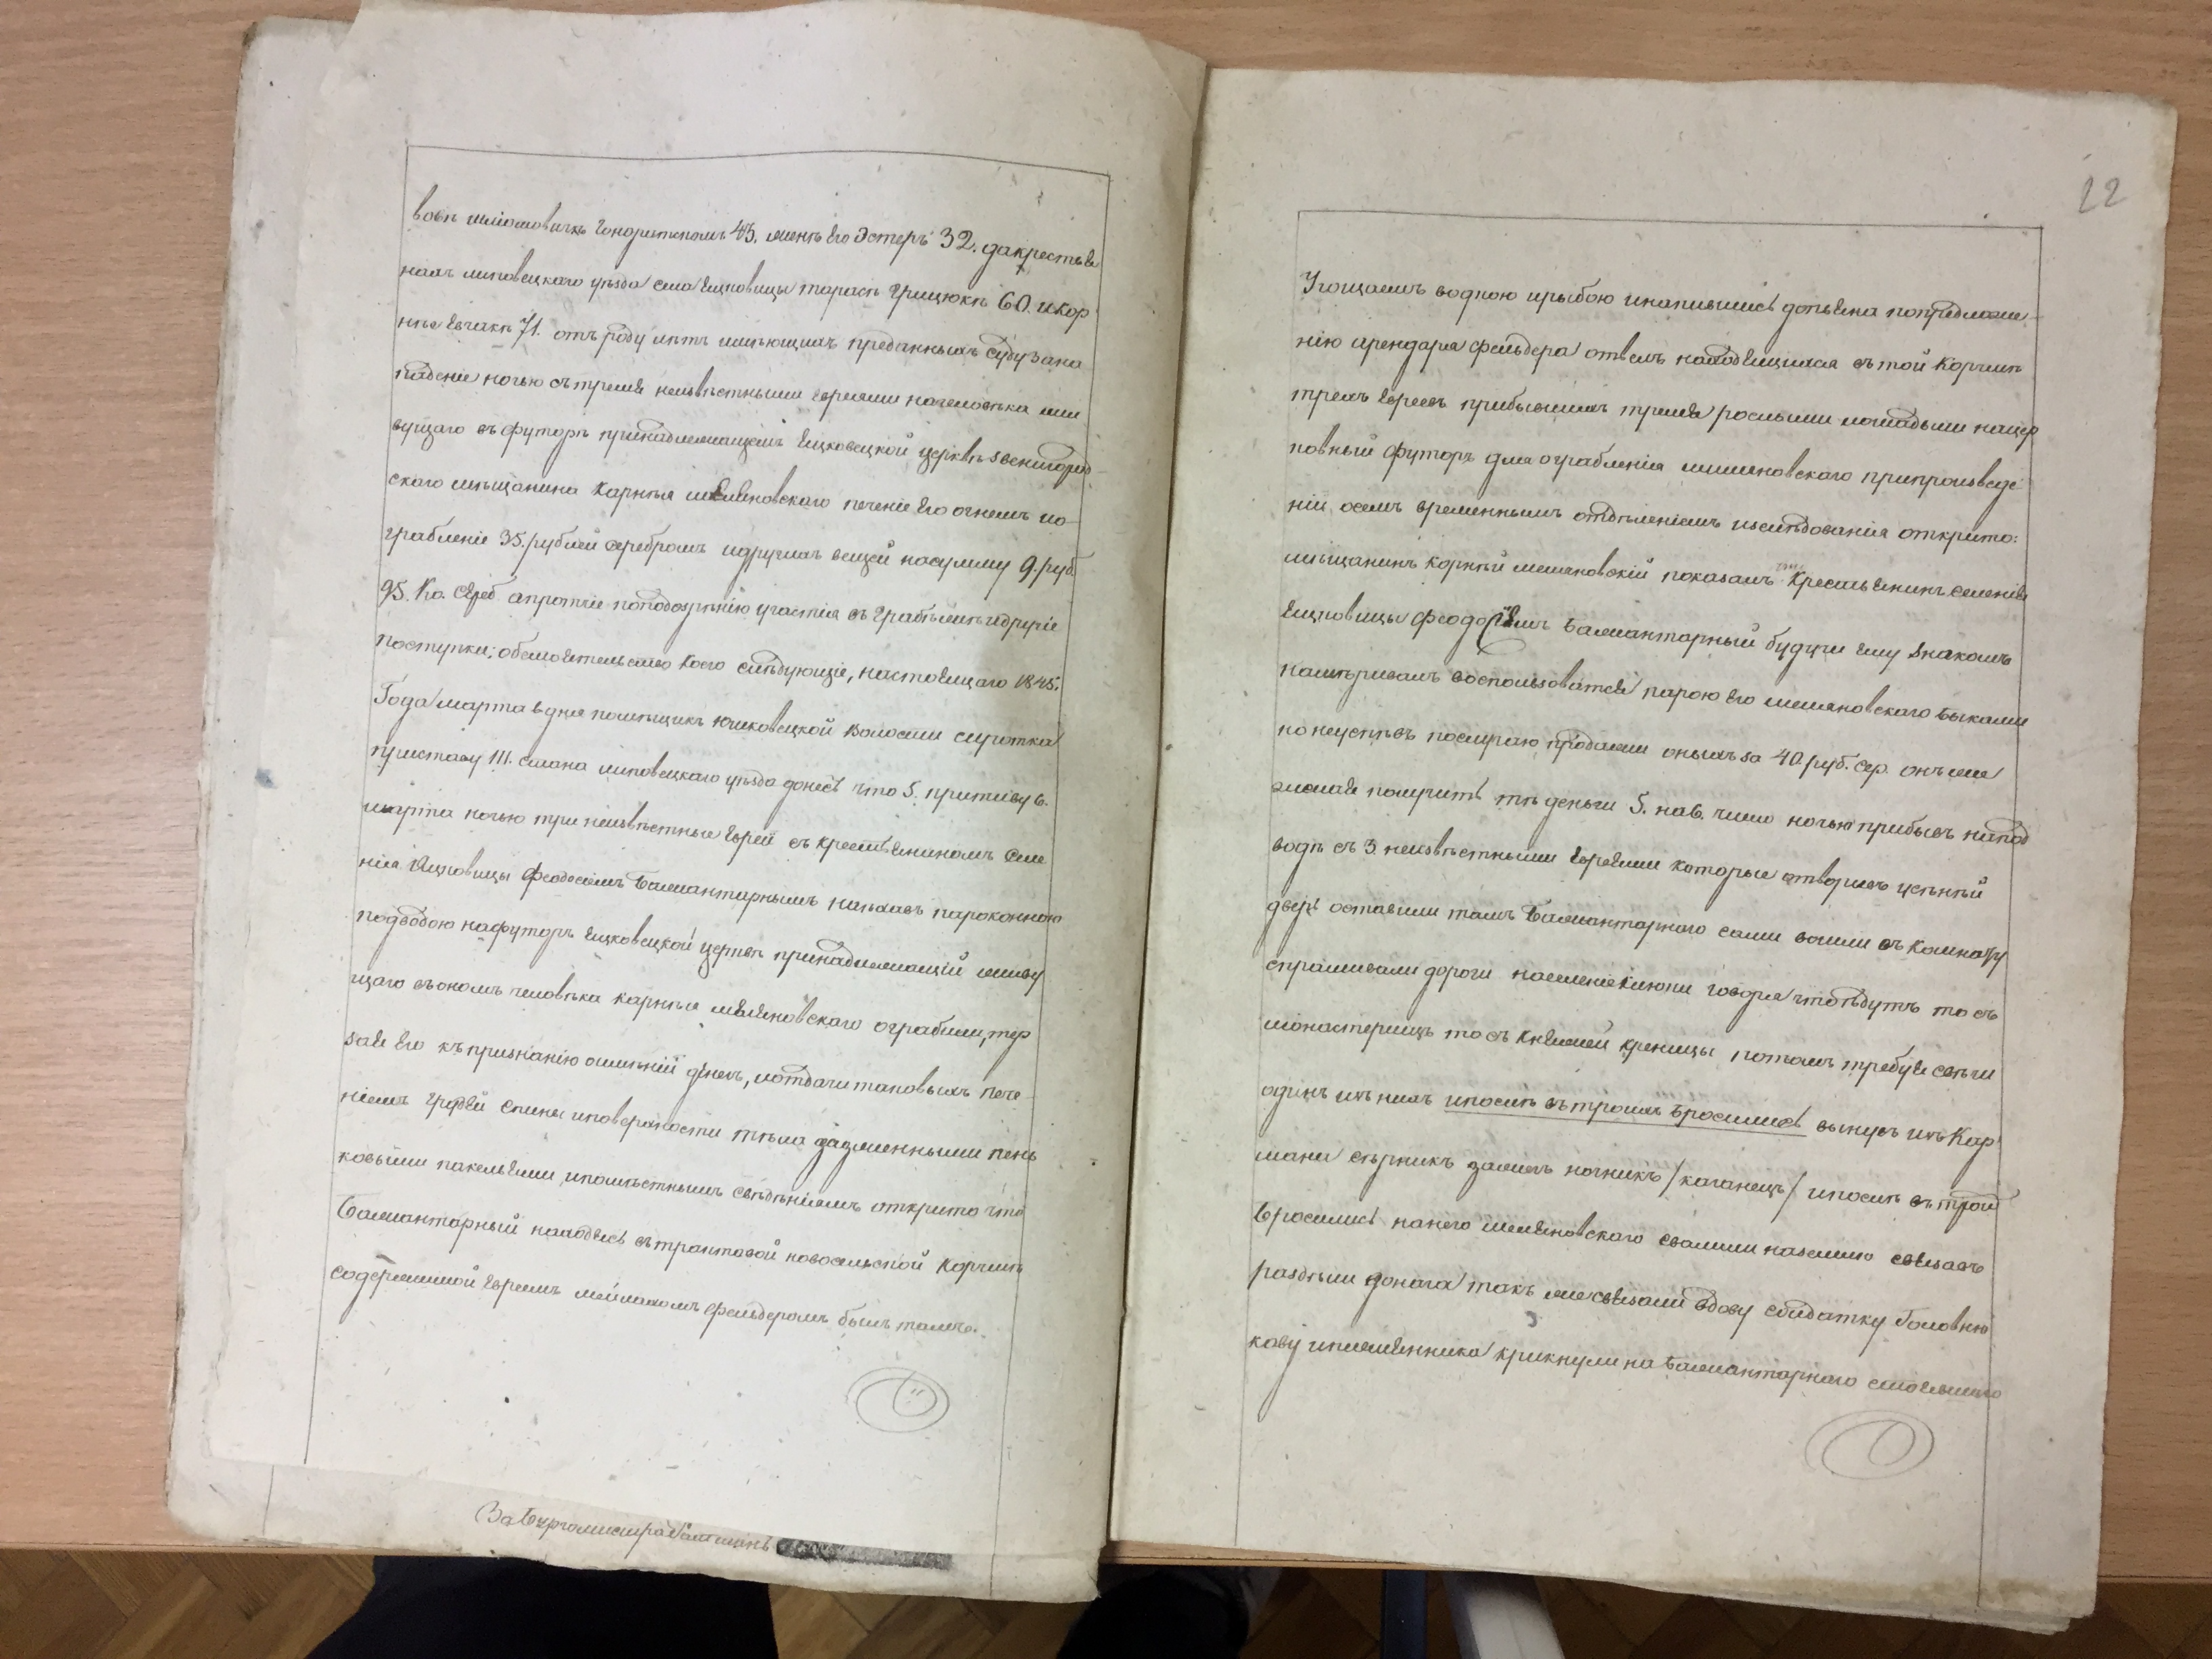 вовъ шліомовичъ Гонориткомъ 43. женъ Его Эстеръ 32. да крестьЯ
намъ липовецкаго уѣзда села Яцковицы тарасъ Грицюкъ 60. и кор
нѣе 71. отъ роду лѣтъ имѣющихъ преданныхъ суду за на
паденіе ночью съ тремЯ неизвѣстными Евреями на человѣка жи
вущаго въ футорѣ принадлежащемъ Яцковецкой церквѣ звенигород
скаго мѣщанина Карнѣя шемЯновскаго печеніе Его огнемъ и о
грабленіе 35. рублей серебромъ и другихъ вещей на сумму 9. руб.
95. Ко. Сереб а протчіе по подозрѣнію участія въ грабѣжѣ и другіе
поступки; обстоЯтельство коего слѣдующіе, настоЯщаго 1845.
Года марта 8 дня помѣщикъ Юшковецкой волости сиротка
приставу III. стана липовецкаго уѣзда донесъ что 5. противу 6.
марта ночью три неизвѣстные Еврей съ крестьЯниномъ Селе
нія Яцковицы Феодосіемъ Балжантарнымъ наѣхавъ пароконною
подводою на футоръ Яцковецкой церквѣ принадлежащій живу
щаго въ ономъ человѣка карнѣя шемЯновскаго ограбили, тер
заЯ Его къ признанію о имѣніи денегъ, и отдачи таковыхъ пече
ніемъ грудей спины и поверхности тѣла зазженными пень
ковыми паклЯми, и помѣстнымъ свѣдѣніямъ открыто что
Балжантарный находЯсь въ трактовой новосельской Корчмѣ
содержимой Евреемъ мейлахомъ Фельдеромъ былъ тамъ.
За Бургомистра
22
Угощаемъ водкою и рыбою и напившись допьЯна по предложе-
нію арендаря Фельдера отвезъ находЯщихся въ той Корчмѣ
трехъ Евреевъ прибывшихъ тремЯ рослыми лошадьми на цер
ковный футоръ для ограбленія шимановскаго при произведе
ніи о семъ временнымъ отдѣленіемъ изслѣдованія открыто:
мѣщанинъ Корнѣй шемяновскій показалъ что КрестьЯнинъ селеніЯ
Яцковицы Феодосій Балжантарный будучи Ему знакомъ
намѣривалъ воспользоватсЯ парою Его шемяновскаго быками
но неуспѣвъ по случаю продажи оныхъ за 40. руб. сер. онъ же
желаЯ похитить тѣ деньги 5. на 6. число ночью прибывъ на под
водѣ съ 3 неизвѣстными ЕвреЯми которые отворивъ сѣнній
дверь оставили тамъ Балжантарного сами вошли въ комнату
спрашивали дороги на селеніе Кнюхи говоря что ѣдутъ то съ
монастерищъ то съ КнЯжей креницы потомъ требуЯ свѣчи
одинъ изъ нихъ и после въ троихъ бросились вынувъ изъ Кар
мана сѣрникъ зажегъ ночникъ / каганецъ / и после въ троихъ
бросились на него шемЯновскаго свалили на землю свЯзавъ
раздѣли донага такъ же свЯзали вдову солдатку Головню
кову и племЯнника крикнули на Балжантарного стоЯвшаго